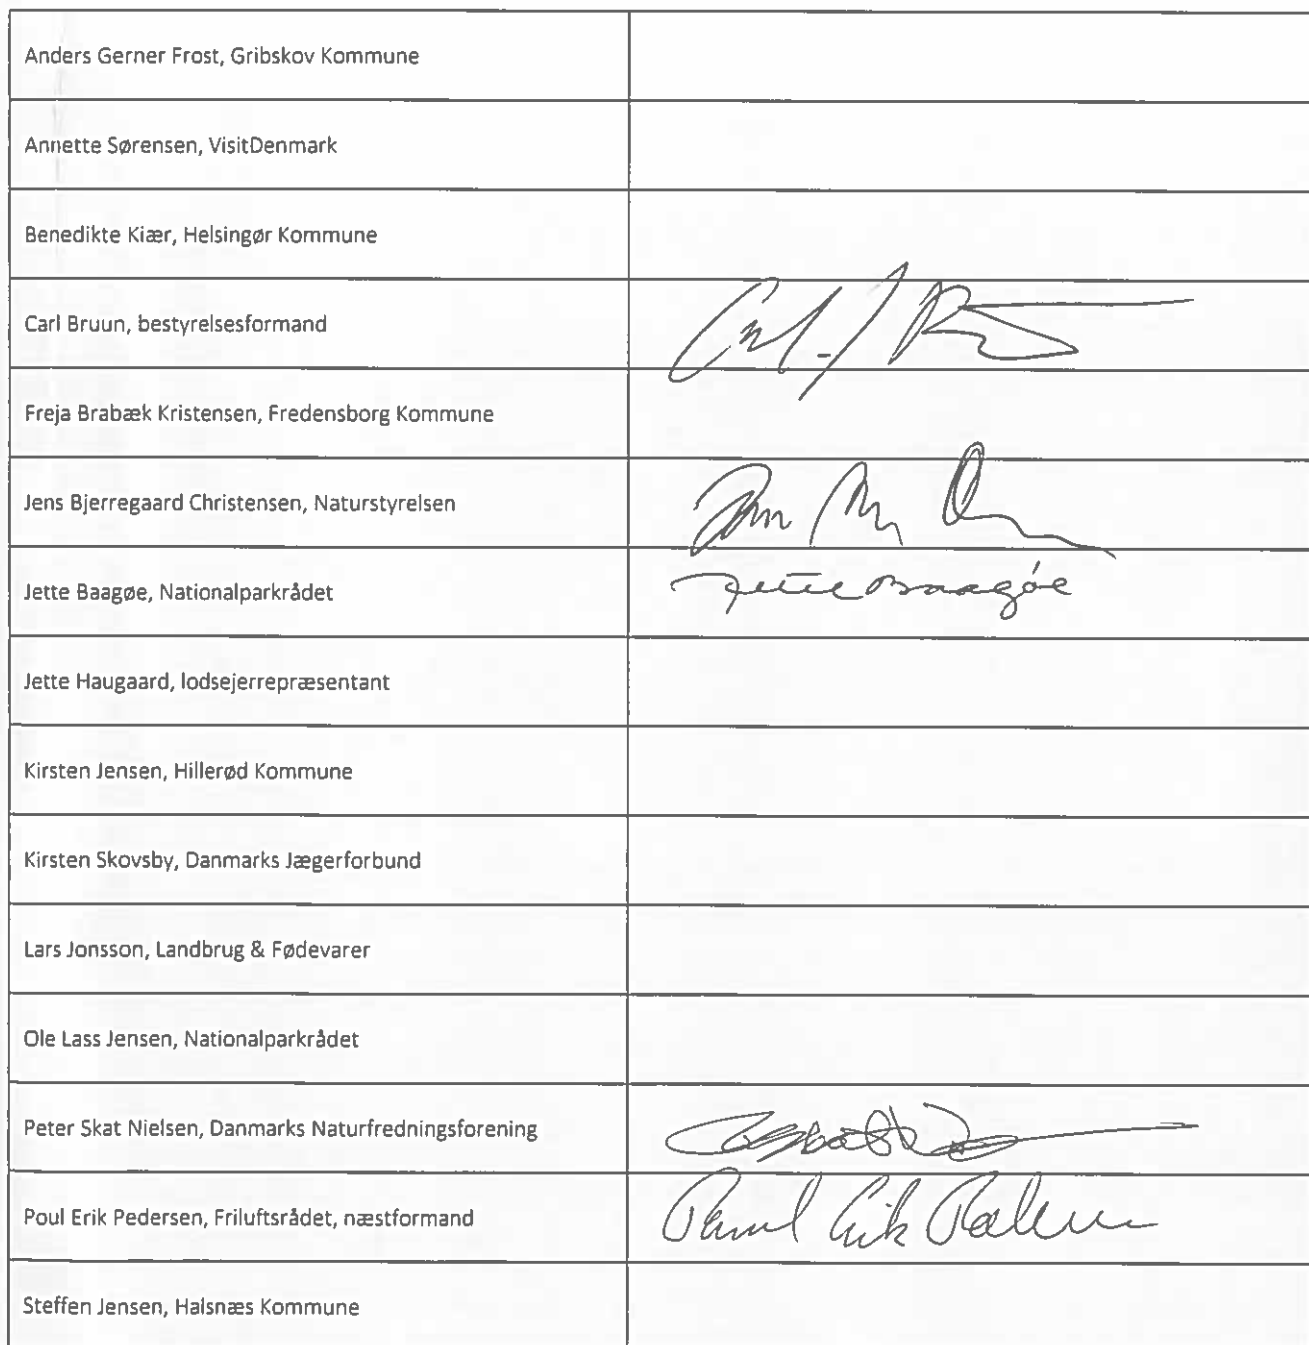 Anders Gerner Frost, Gribskov Kommune
Annette Sørensen, VisitDenmark
Benedikte Kiær, Helsingør Kommune
Carl Bruun, bestyrelsesformand
Freja Brabæk Kristensen, Fredensborg Kommune
Jens Bjerregaard Christensen, Naturstyrelsen
Jette Baagøe, Nationalparkrådet
Jette Baagøe
Jette Haugaard, lodsejerrepræsentant
Kirsten Jensen, Hillerød Kommune
Kirsten Skovsby, Danmarks Jægerforbund
Lars Jonsson, Landbrug & Fødevarer
Ole Lass Jensen, Nationalparkrådet
Peter Skat Nielsen, Danmarks Naturfredningsforening
Poul Erik Pedersen, Friluftsrådet, næstformand
Poul Erik Pedersen
Steffen Jensen, Halsnæs Kommune